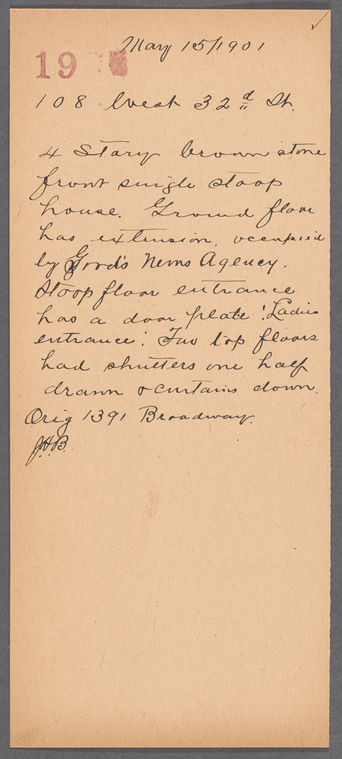 May 15/1901
19
108 West 32d St.
4 Story brown stone
front single stoop
house. Ground floor
has extension, occupied
by Ford's News Agency.
Stoop floor entrance
has a door plate "Ladies
entrance". Two top floors
had shutters one half
drawn & curtains down.
Orig 1391 Broadway.
JHB.